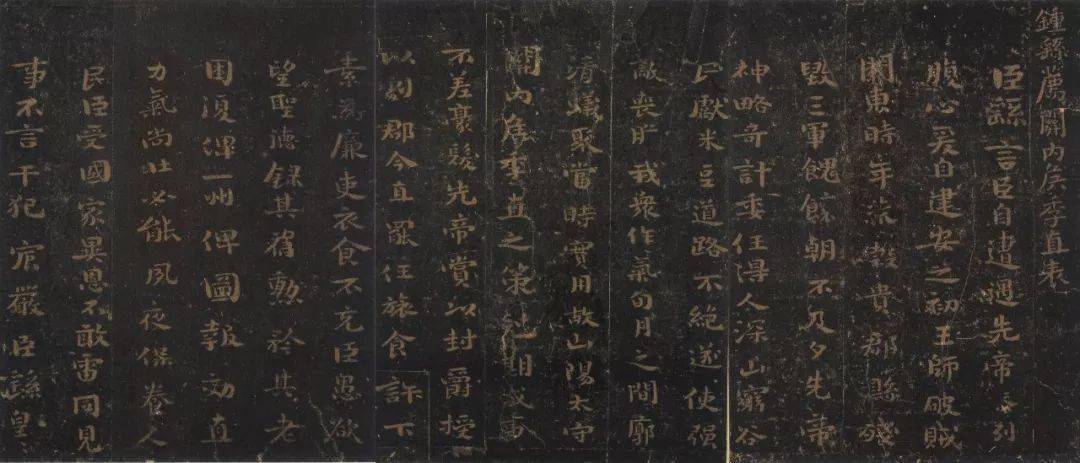 鍾繇薦關内侯季直表
臣繇言臣自遭遇先帝忝列
腹心爰自建安之初王師破賊
關東時年荒穀貴郡縣殘
毀三軍餽饟朝不及夕先帝
神略奇計委任得人深山窮谷
民獻米豆道路不絕遂使强
敵喪膽我衆作氣旬月之間廓
清蟻聚當時實用故山陽太守
關内侯季直之策期成事
不差豪髮先帝賞以封爵授
以劇郡今直罷任旅食許下
素爲廉吏衣食不充臣愚欲
望聖德錄其舊勳矜其老
困復俾一州俾圖報効直
力氣尚壯必能夙夜保養人
民臣受國家異恩不敢雷同見
事不言干犯宸嚴臣繇皇